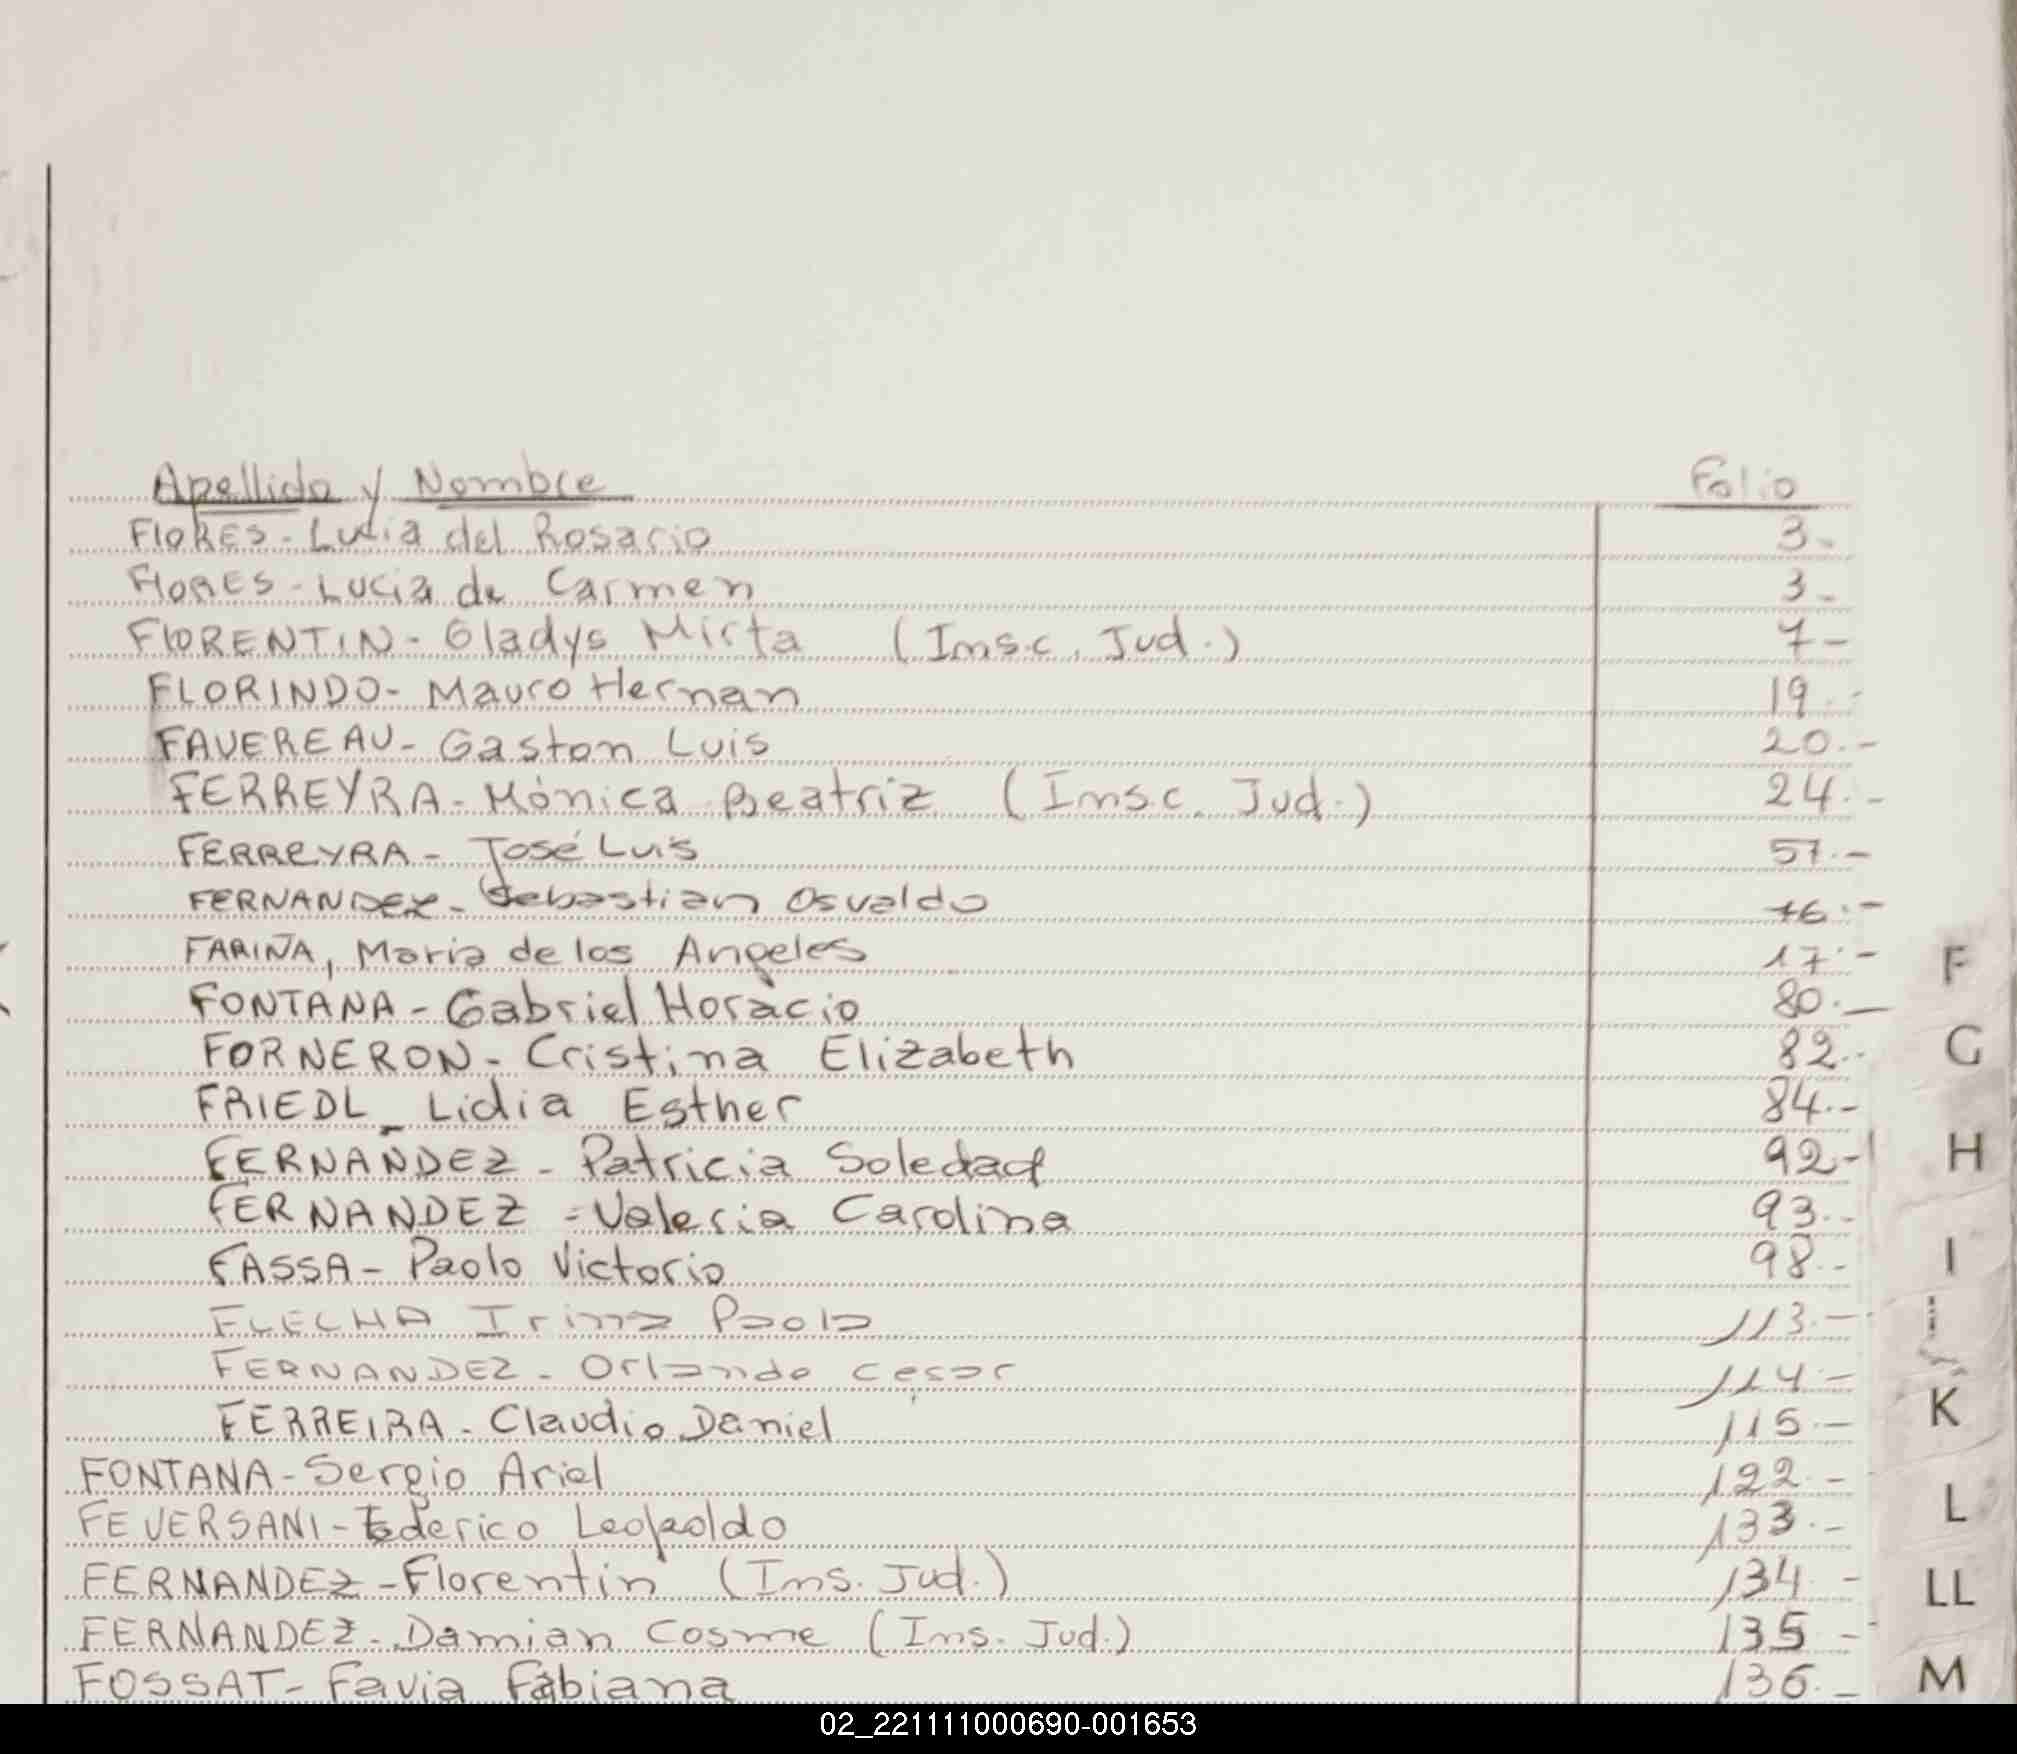 Apellido y Nombre Folio
FlORES - Lucia del Rosario 3 -
FlORES - Lucia de Carmen 3 -
FlORENTIN - Gladys Mirta (Insc. Jud.) 7 -
FLORINDO - Mauro Hernan 19. -
FAVEREAU - Gaston Luis 20. -
FERREYRA - Mónica Beatriz (Insc. Jud.) 24. -
FERREYRA - José Luis 57. -
FERNANDEZ - Sebastian Osvaldo 76. -
FARIÑA, Maria de los Angeles 17. -
FONTANA - Gabriel Horacio 80. -
FORNERON - Cristina Elizabeth 82. -
FRIEDL - Lidia Esther 84. -
FERNÁNDEZ - Patricia Soledad 92 -
FERNANDEZ = Valeria Carolina 93. -
FASSA - Paolo Victorio 98. -
FLECHA Irina Paola 113. -
FERNANDEZ - Orlando cesar 114. -
FERREIRA - Claudio Daniel 115. -
FONTANA - Sergio Ariel 122. -
FEVERSANI - Federico Leopoldo 133. -
FERNANDEZ - Florentin (Ins. Jud.) 134. -
FERNANDEZ - Damian Cosme (Ins. Jud.) 135 -
FOSSAT - Favia Fabiana 136. -
F
G
H
I
K
L
LL
M
02_221111000690-001653